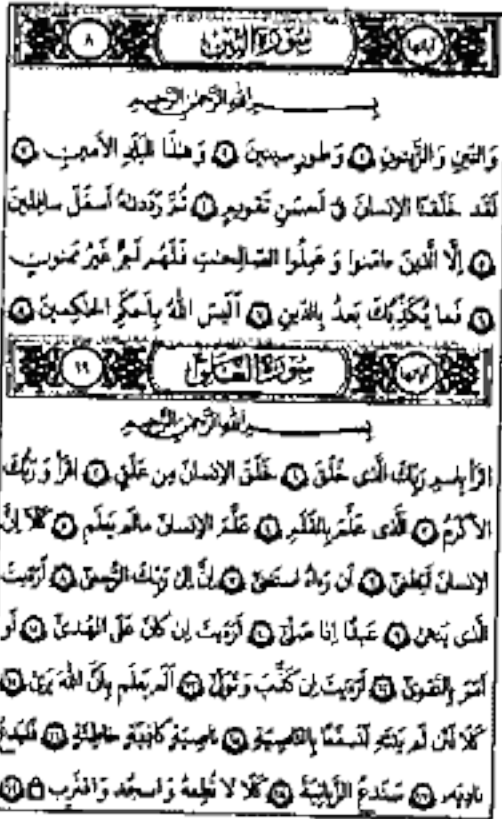 سورة التين آياتها ٨
بسم الله الرحمن الرحيم
وَالتّينِ وَالزَّيتونِ ١ وَطورِ سينينَ ٢ وَهٰذَا البَلَدِ الأَمينِ ٣
لَقَد خَلَقنَا الإِنسانَ في أَحسَنِ تَقويمٍ ٤ ثُمَّ رَدَدناهُ أَسفَلَ سافِلينَ
٥ إِلَّا الَّذينَ ءامَنوا وَعَمِلُوا الصّالِحاتِ فَلَهُم أَجرٌ غَيرُ مَمنونٍ
٦ فَما يُكَذِّبُكَ بَعدُ بِالدّينِ ٧ أَلَيسَ اللَّهُ بِأَحكَمِ الحاكِمينَ ٨
سورة العلق آياتها ١٩
بسم الله الرحمن الرحيم
اقرَأ بِاسمِ رَبِّكَ الَّذى خَلَقَ ١ خَلَقَ الإِنسانَ مِن عَلَقٍ ٢ اقرَأ وَرَبُّكَ
الأَكرَمُ ٣ الَّذى عَلَّمَ بِالقَلَمِ ٤ عَلَّمَ الإِنسانَ ما لَم يَعلَم ٥ كَلّا إِنَّ
الإِنسانَ لَيَطغىٰ ٦ أَن رَءاهُ استَغنىٰ ٧ إِنَّ إِلىٰ رَبِّكَ الرُّجعىٰ ٨ أَرَءَيتَ
الَّذى يَنهىٰ ٩ عَبدًا إِذا صَلّىٰ ١٠ أَرَءَيتَ إِن كانَ عَلَى الهُدىٰ ١١ أَو
أَمَرَ بِالتَّقوىٰ ١٢ أَرَءَيتَ إِن كَذَّبَ وَتَوَلّىٰ ١٣ أَلَم يَعلَم بِأَنَّ اللَّهَ يَرىٰ ١٤
كَلّا لَئِن لَم يَنتَهِ لَنَسفَعًا بِالنّاصِيَةِ ١٥ ناصِيَةٍ كاذِبَةٍ خاطِئَةٍ ١٦ فَليَدعُ
نادِيَهُ ١٧ سَنَدعُ الزَّبانِيَةَ ١٨ كَلّا لا تُطِعهُ وَاسجُد وَاقتَرِب ۩ ١٩